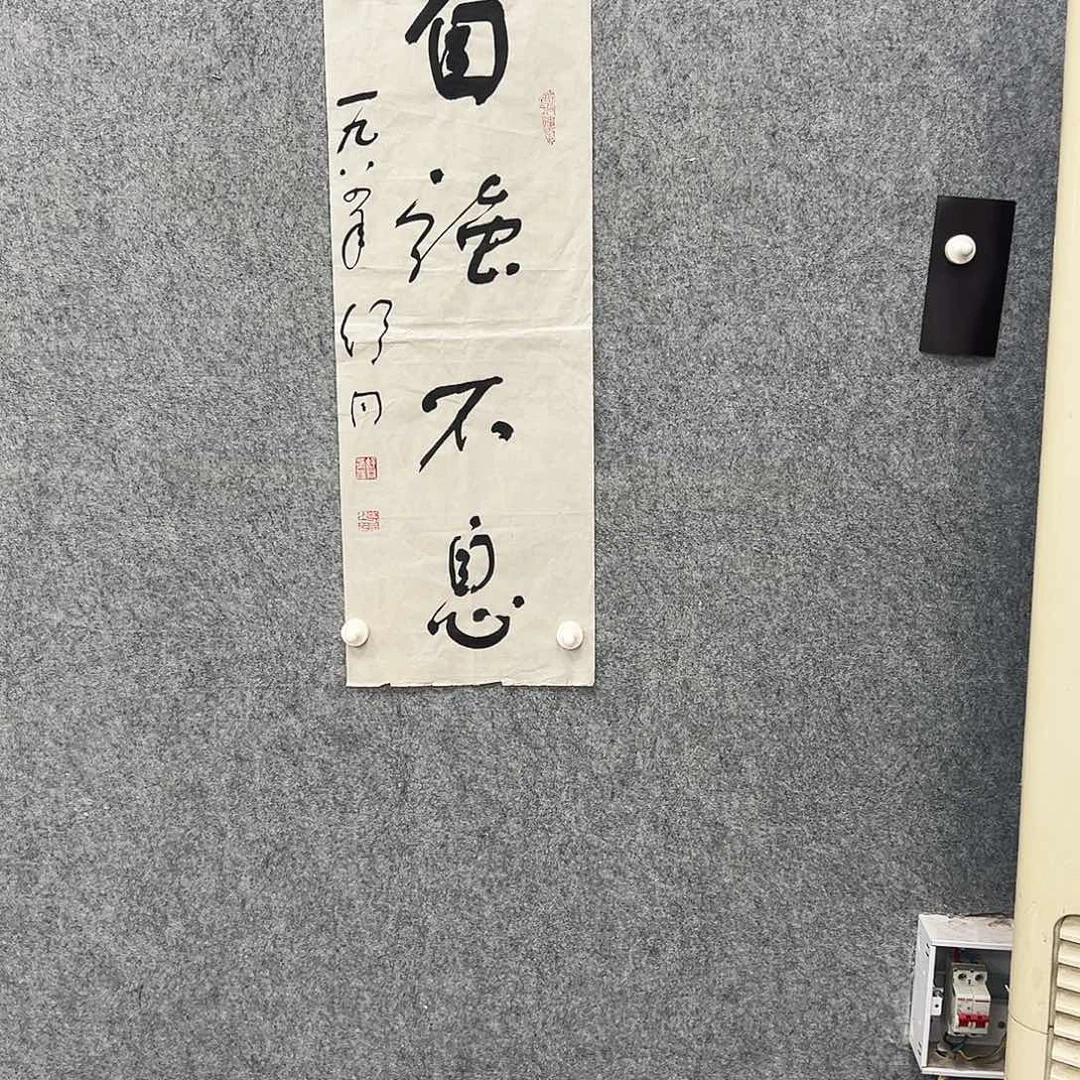 自强不息
一九八四年 舒同